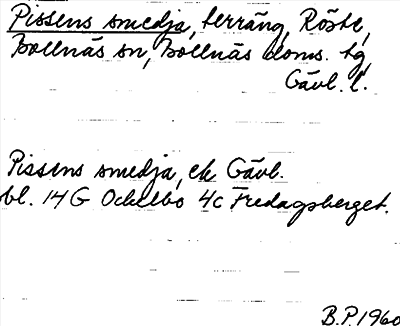 Pissens smedja, terräng, Röste,
Bollnäs sn, Bollnäs doms. tg,
Gävl. l.
Pissens smedja, ek Gävb.
bl. 14 G Ockelbo 4c Fredagsberget.
B.P. 1960